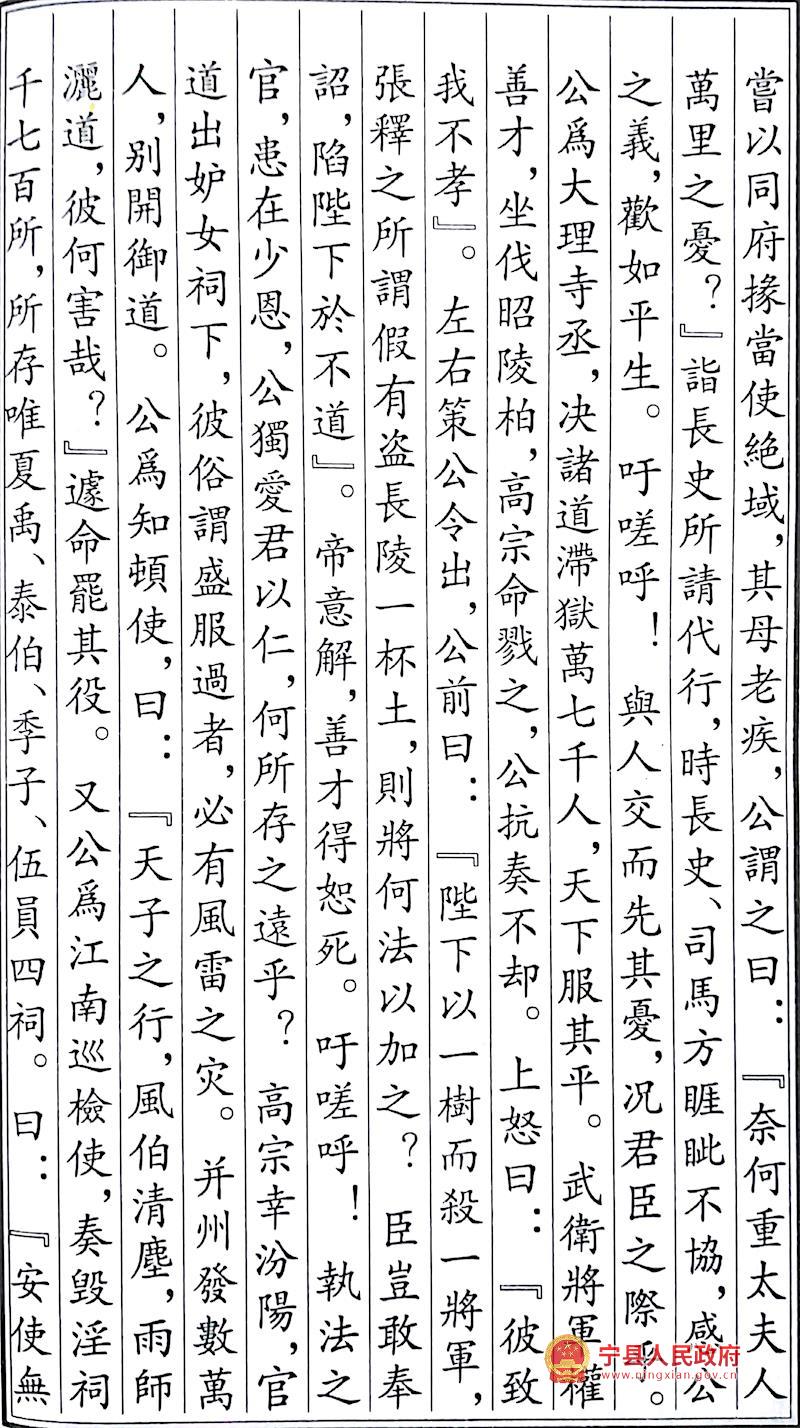 嘗以同府掾當使絶域，其母老疾，公謂之曰：『奈何重太夫人
萬里之憂？』詣長史所請代行，時長史、司馬方睚眦不協，感公
之義，歡如平生。吁嗟呼！與人交而先其憂，况君臣之際乎。
公爲大理寺丞，决諸道滯獄萬七千人，天下服其平。武衛將軍權
善才，坐伐昭陵柏，高宗命戮之，公抗奏不却。上怒曰：『彼致
我不孝』。左右策公令出，公前曰：『陛下以一樹而殺一將軍，
張釋之所謂假有盗長陵一杯土，則將何法以加之？臣豈敢奉
詔，陷陛下於不道』。帝意解，善才得恕死。吁嗟呼！執法之
官，患在少恩，公獨愛君以仁，何所存之遠乎？高宗幸汾陽，官
道出妒女祠下，彼俗謂盛服過者，必有風雷之灾。并州發數萬
人，别開御道。公爲知頓使，曰：『天子之行，風伯清塵，雨師
灑道，彼何害哉？』遽命罷其役。又公爲江南巡檢使，奏毁淫祠
千七百所，所存唯夏禹、泰伯、季子、伍員四祠。曰：『安使無
宁县人民政府
www.ningxian.gov.cn